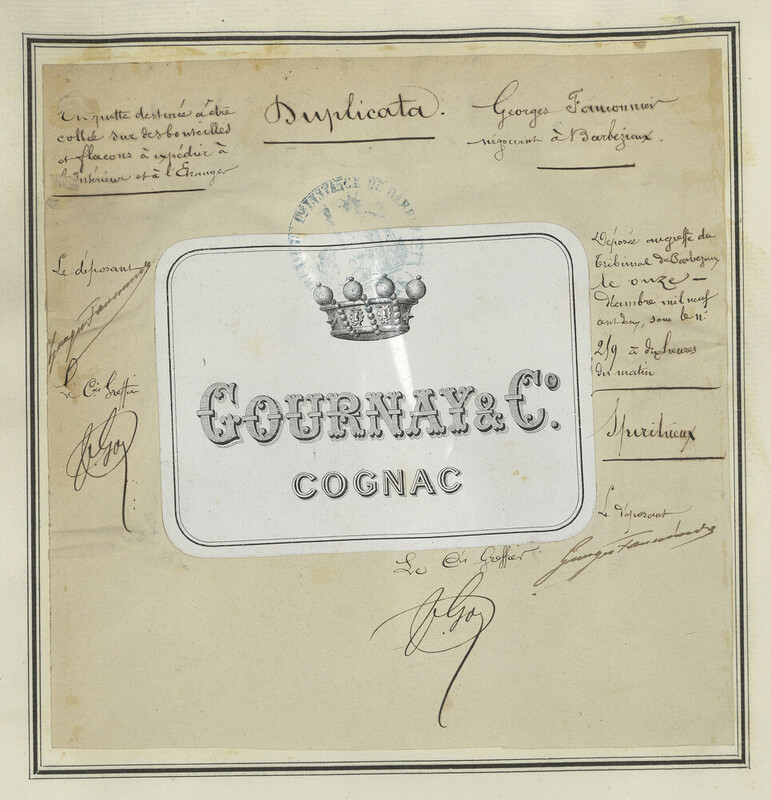 Duplicata.
Etiquette destinée à être
collée sur des bouteilles
et flacons à expédier à
l'Intérieur et à l'Etranger
Georges Fauconnier
négociant à Barbezieux.
Le déposant
Georges Fauconnier
Le Cis Greffier
INSTANCE DE BARB
GOURNAY & Cº.
COGNAC
Déposée au greffe du
Tribunal de Barbezieux
le onze
décembre mil neuf
cent deux, sous le nº
219 à dix heures
du matin
Spiritueux
Le déposant
Georges Fauconnier
Le Cis Greffier